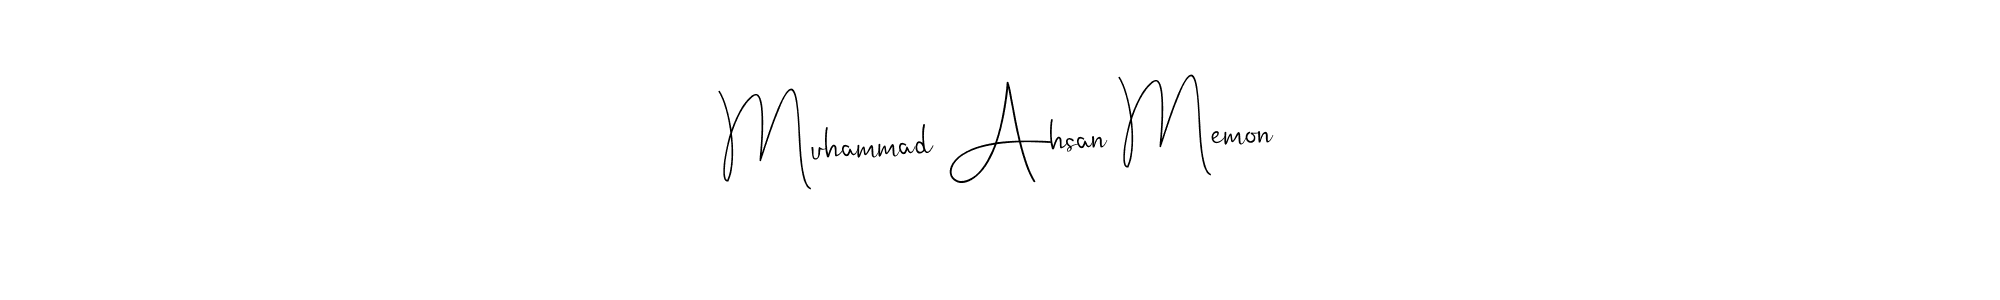 Muhammad Ahsan Memon